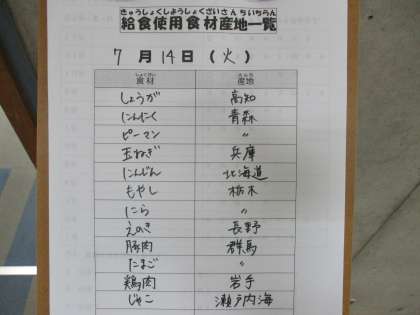 きゅうしょくしようしょくざいさんちいちらん
給食使用食材産地一覧
7月14日(火)
しょくざい さんち
食材 産地
しょうが 高知
にんにく 青森
ピーマン 〃
玉ねぎ 兵庫
にんじん 北海道
もやし 栃木
にら 〃
えのき 長野
豚肉 群馬
たまご 〃
鶏肉 岩手
じゃこ 瀬戸内海